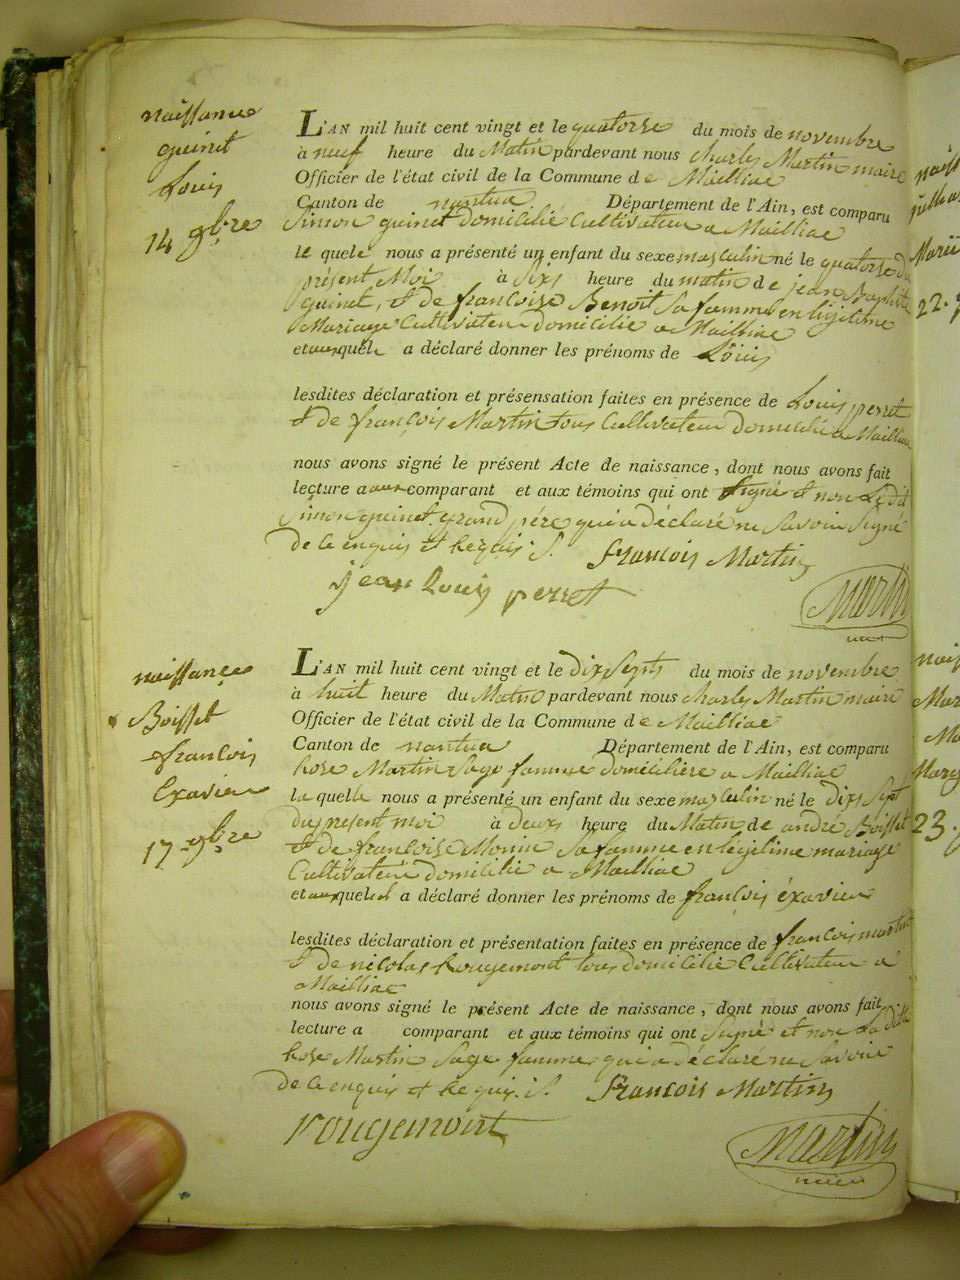 naissance
guinet
Louis
14 9bre
L'AN mil huit cent vingt et le quatorse du mois de novembre
à neuf heure du Matin pardevant nous Charles Martin maire
Officier de l'état civil de la Commune de Mailliac
Canton de nantua Département de l'Ain, est comparu
Simon guinet domicilié Cultivateur a Mailliac
le quele nous a présenté un enfant du sexe masculin né le quatorse du
présent Moi à sixs heure du matin de jean Baptiste
guinet, & de francoise Benoit sa famme en légitime
Mariage Cultivateur domicilié a Mailliac
et auquele a déclaré donner les prénoms de Louis
lesdites déclaration et présensation faites en présence de Louis perret
& de françois Martin tous Cultivateur domicilié a Mailliac
nous avons signé le présent Acte de naissance, dont nous avons fait
lecture a aux comparant et aux témoins qui ont signé et non Ledit
Simon guinet grand pére qui a déclaré ne Savoir Signé
de ce enquis et Requis. S. francois Martin
jean Louis perret
Martin
naissance
Boisset
francois
Exavier
17 9bre
L'AN mil huit cent vingt et le dix Septs du mois de novembre
à huit heure du Matin pardevant nous Charles Martin maire
Officier de l'état civil de la Commune de Mailliac
Canton de nantua Département de l'Ain, est comparu
Rose Martin Sage famme domicilière a Mailliac
la quelle nous a présenté un enfant du sexe masculin né le dixs Sept
du présent moi à deuxs heure du Matin de andré Boisset
& de francoise Monin Sa famme en légitime mariage
Cultivateur domicilié a Mailliac
et auquel a déclaré donner les prénoms de françois éxavier
lesdites déclaration et présentation faites en présence de francois martin
& de nicolas Rougemont tous domicilié Cultivateur a
Mailliac
nous avons signé le présent Acte de naissance, dont nous avons fait
lecture a comparant et aux témoins qui ont Signé et non La ditte
Rose Martin Sage famme qui a déclaré ne Savoir
de ce enquis et Requis. S. francois Martin
rougemont
Martin
22.
23.